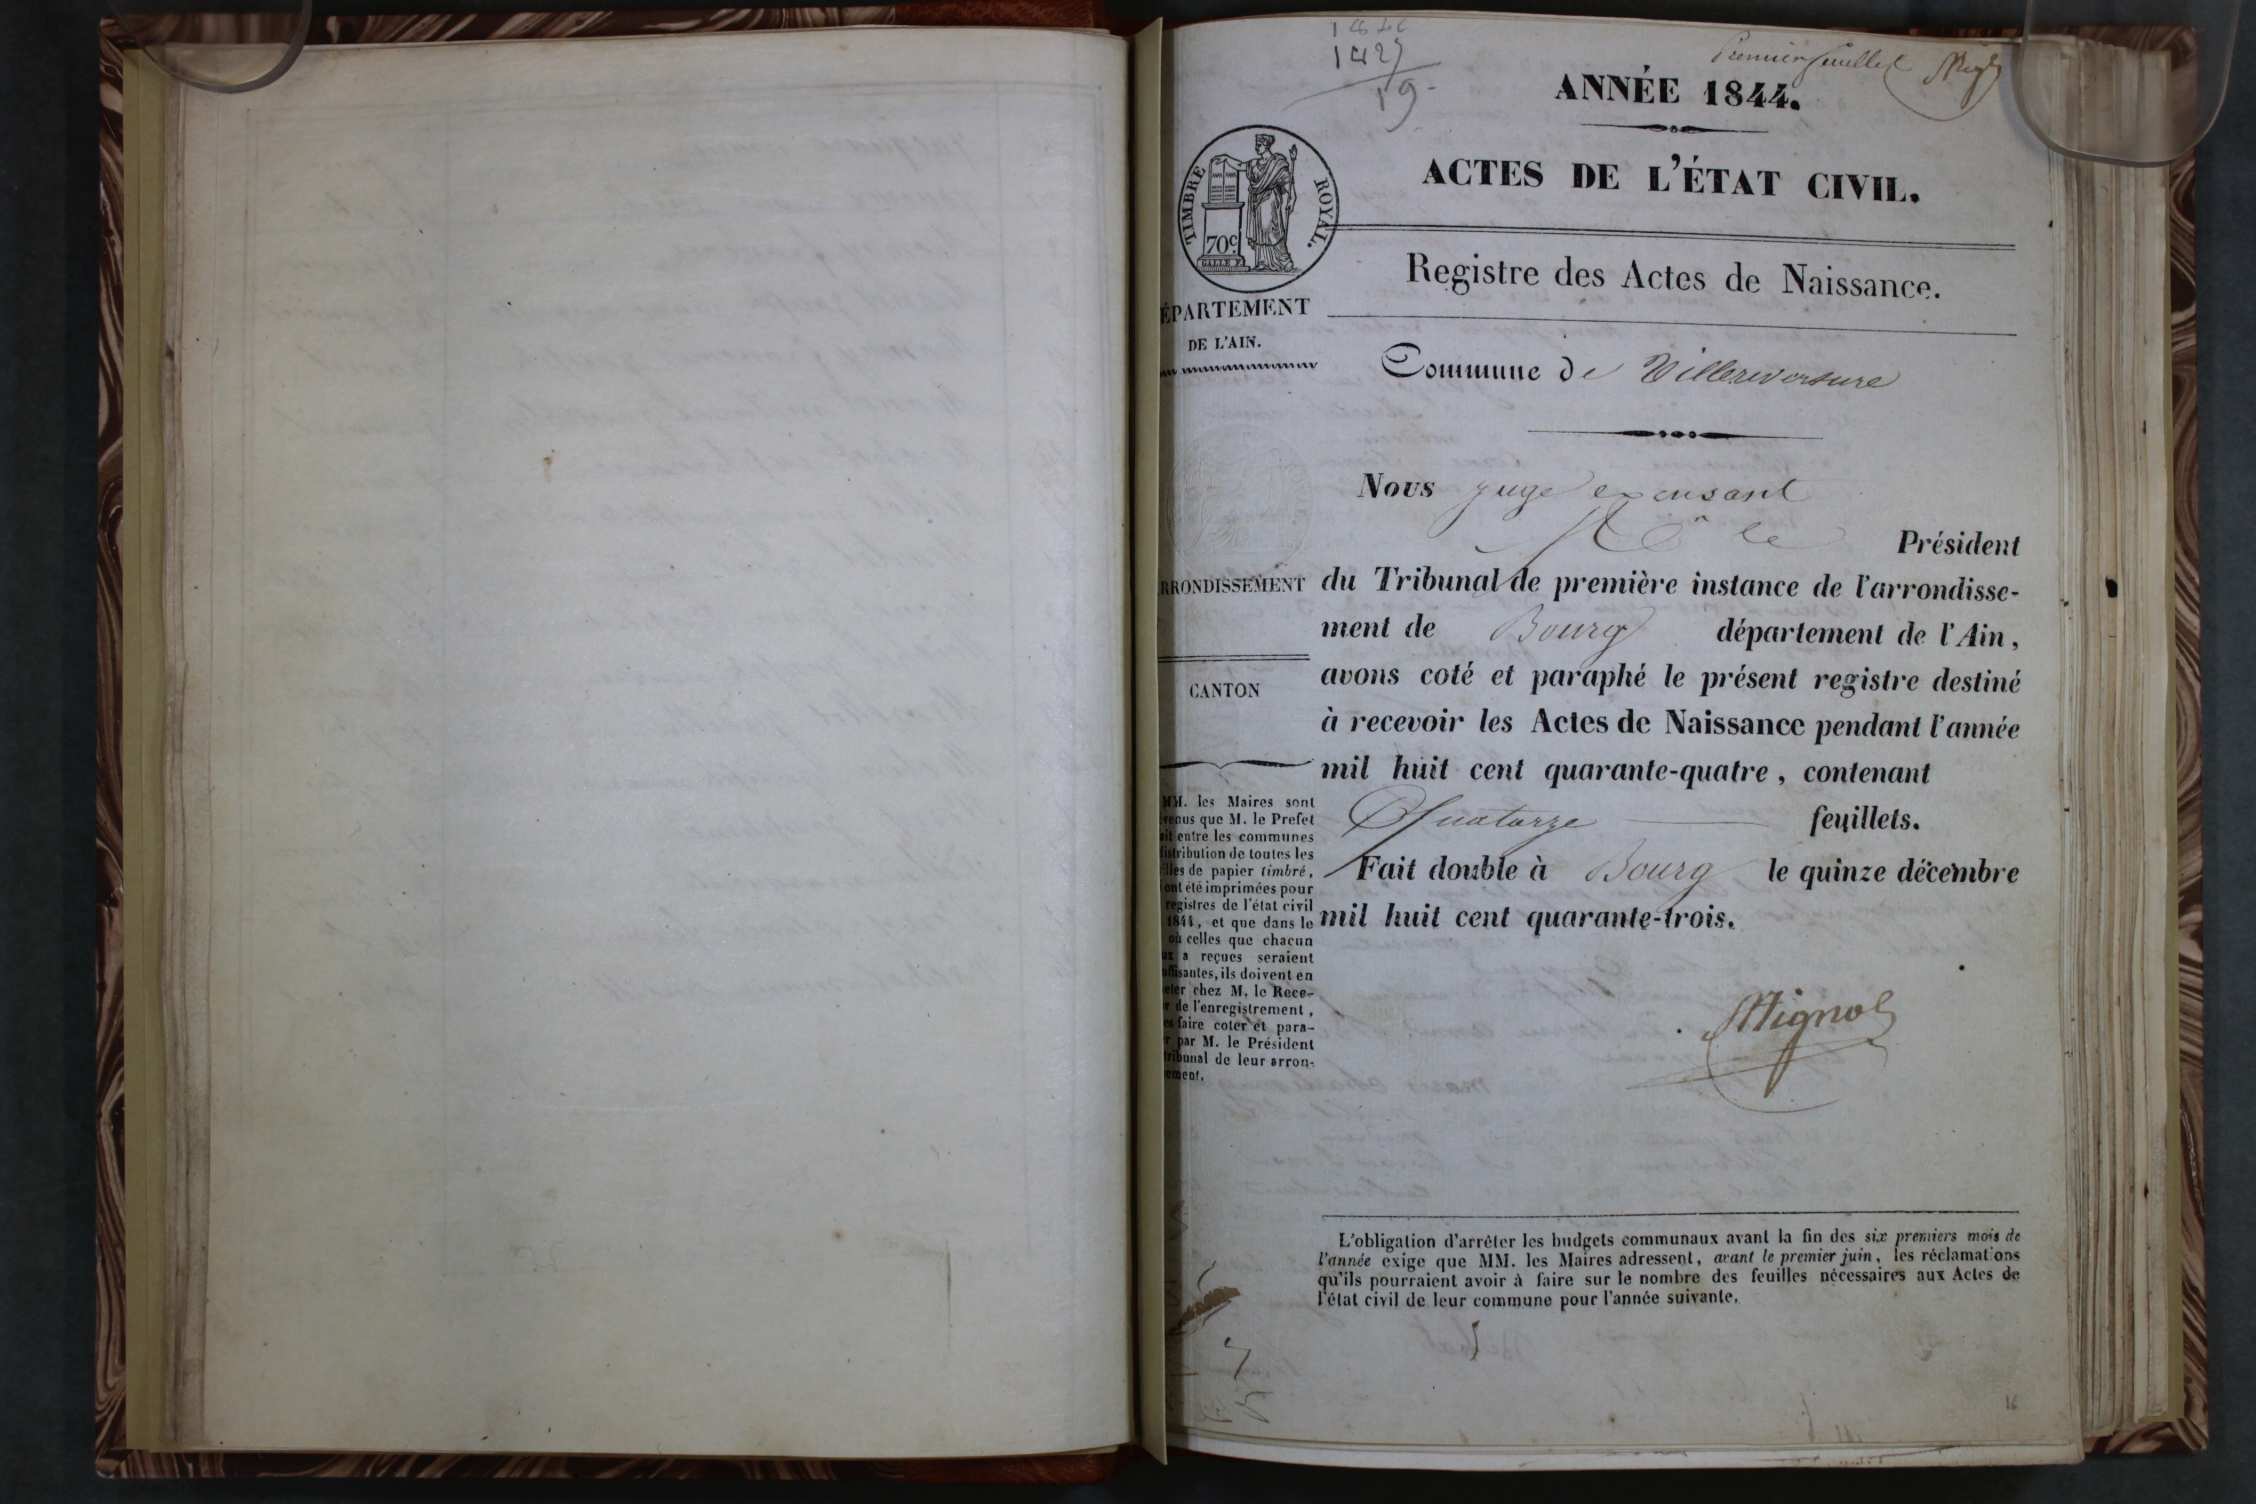 1846
1827
19
Premier feuillet
ANNÉE 1844.
ACTES DE L'ÉTAT CIVIL.
TIMBRE ROYAL.
70c
GALLE F.
Registre des Actes de Naissance.
ÉPARTEMENT
DE L'AIN.
Commune de Villereversure
Nous juge excusant
le Président
RRONDISSEMENT
du Tribunal de première instance de l'arrondisse-
ment de Bourg département de l'Ain,
avons coté et paraphé le présent registre destiné
CANTON
à recevoir les Actes de Naissance pendant l'année
mil huit cent quarante-quatre, contenant
Quatorze feuillets.
Fait double à Bourg le quinze décembre
mil huit cent quarante-trois.
MM. les Maires sont
venus que M. le Prefet
ait entre les communes
distribution de toutes les
lles de papier timbré,
ont été imprimées pour
registres de l'état civil
1844, et que dans le
où celles que chacun
ux a reçues seraient
uffisantes, ils doivent en
eter chez M. le Rece-
r de l'enregistrement,
es faire coter et para-
r par M. le Président
tribunal de leur arron-
ement.
Mignot
L'obligation d'arrêter les budgets communaux avant la fin des six premiers mois de
l'année exige que MM. les Maires adressent, avant le premier juin, les réclamations
qu'ils pourraient avoir à faire sur le nombre des feuilles nécessaires aux Actes de
l'état civil de leur commune pour l'année suivante.
16